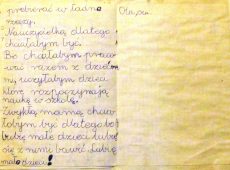 przebierać w ładne
rzeczy.
Nauczycielką dlatego
chciałabym być.
Bo chciałabym praco
wać razem z dzieć
mi, uczyłabym dzieci
które rozpoczynają
naukę w szkole.
Zwykłą mamą chcia
łabym być dlatego bo
lubię małe dzieci lubię
się z nimi bawić. Lubię
małe dzieci!